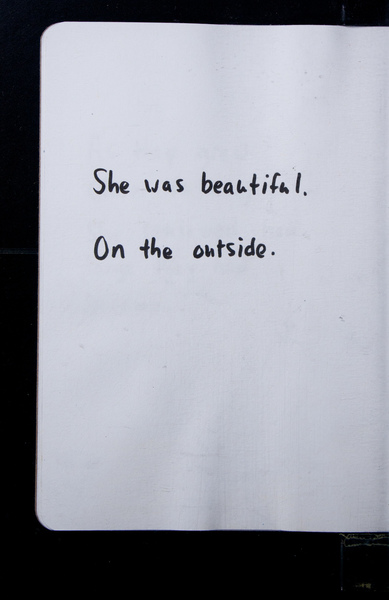 She was beautiful.
On the outside.